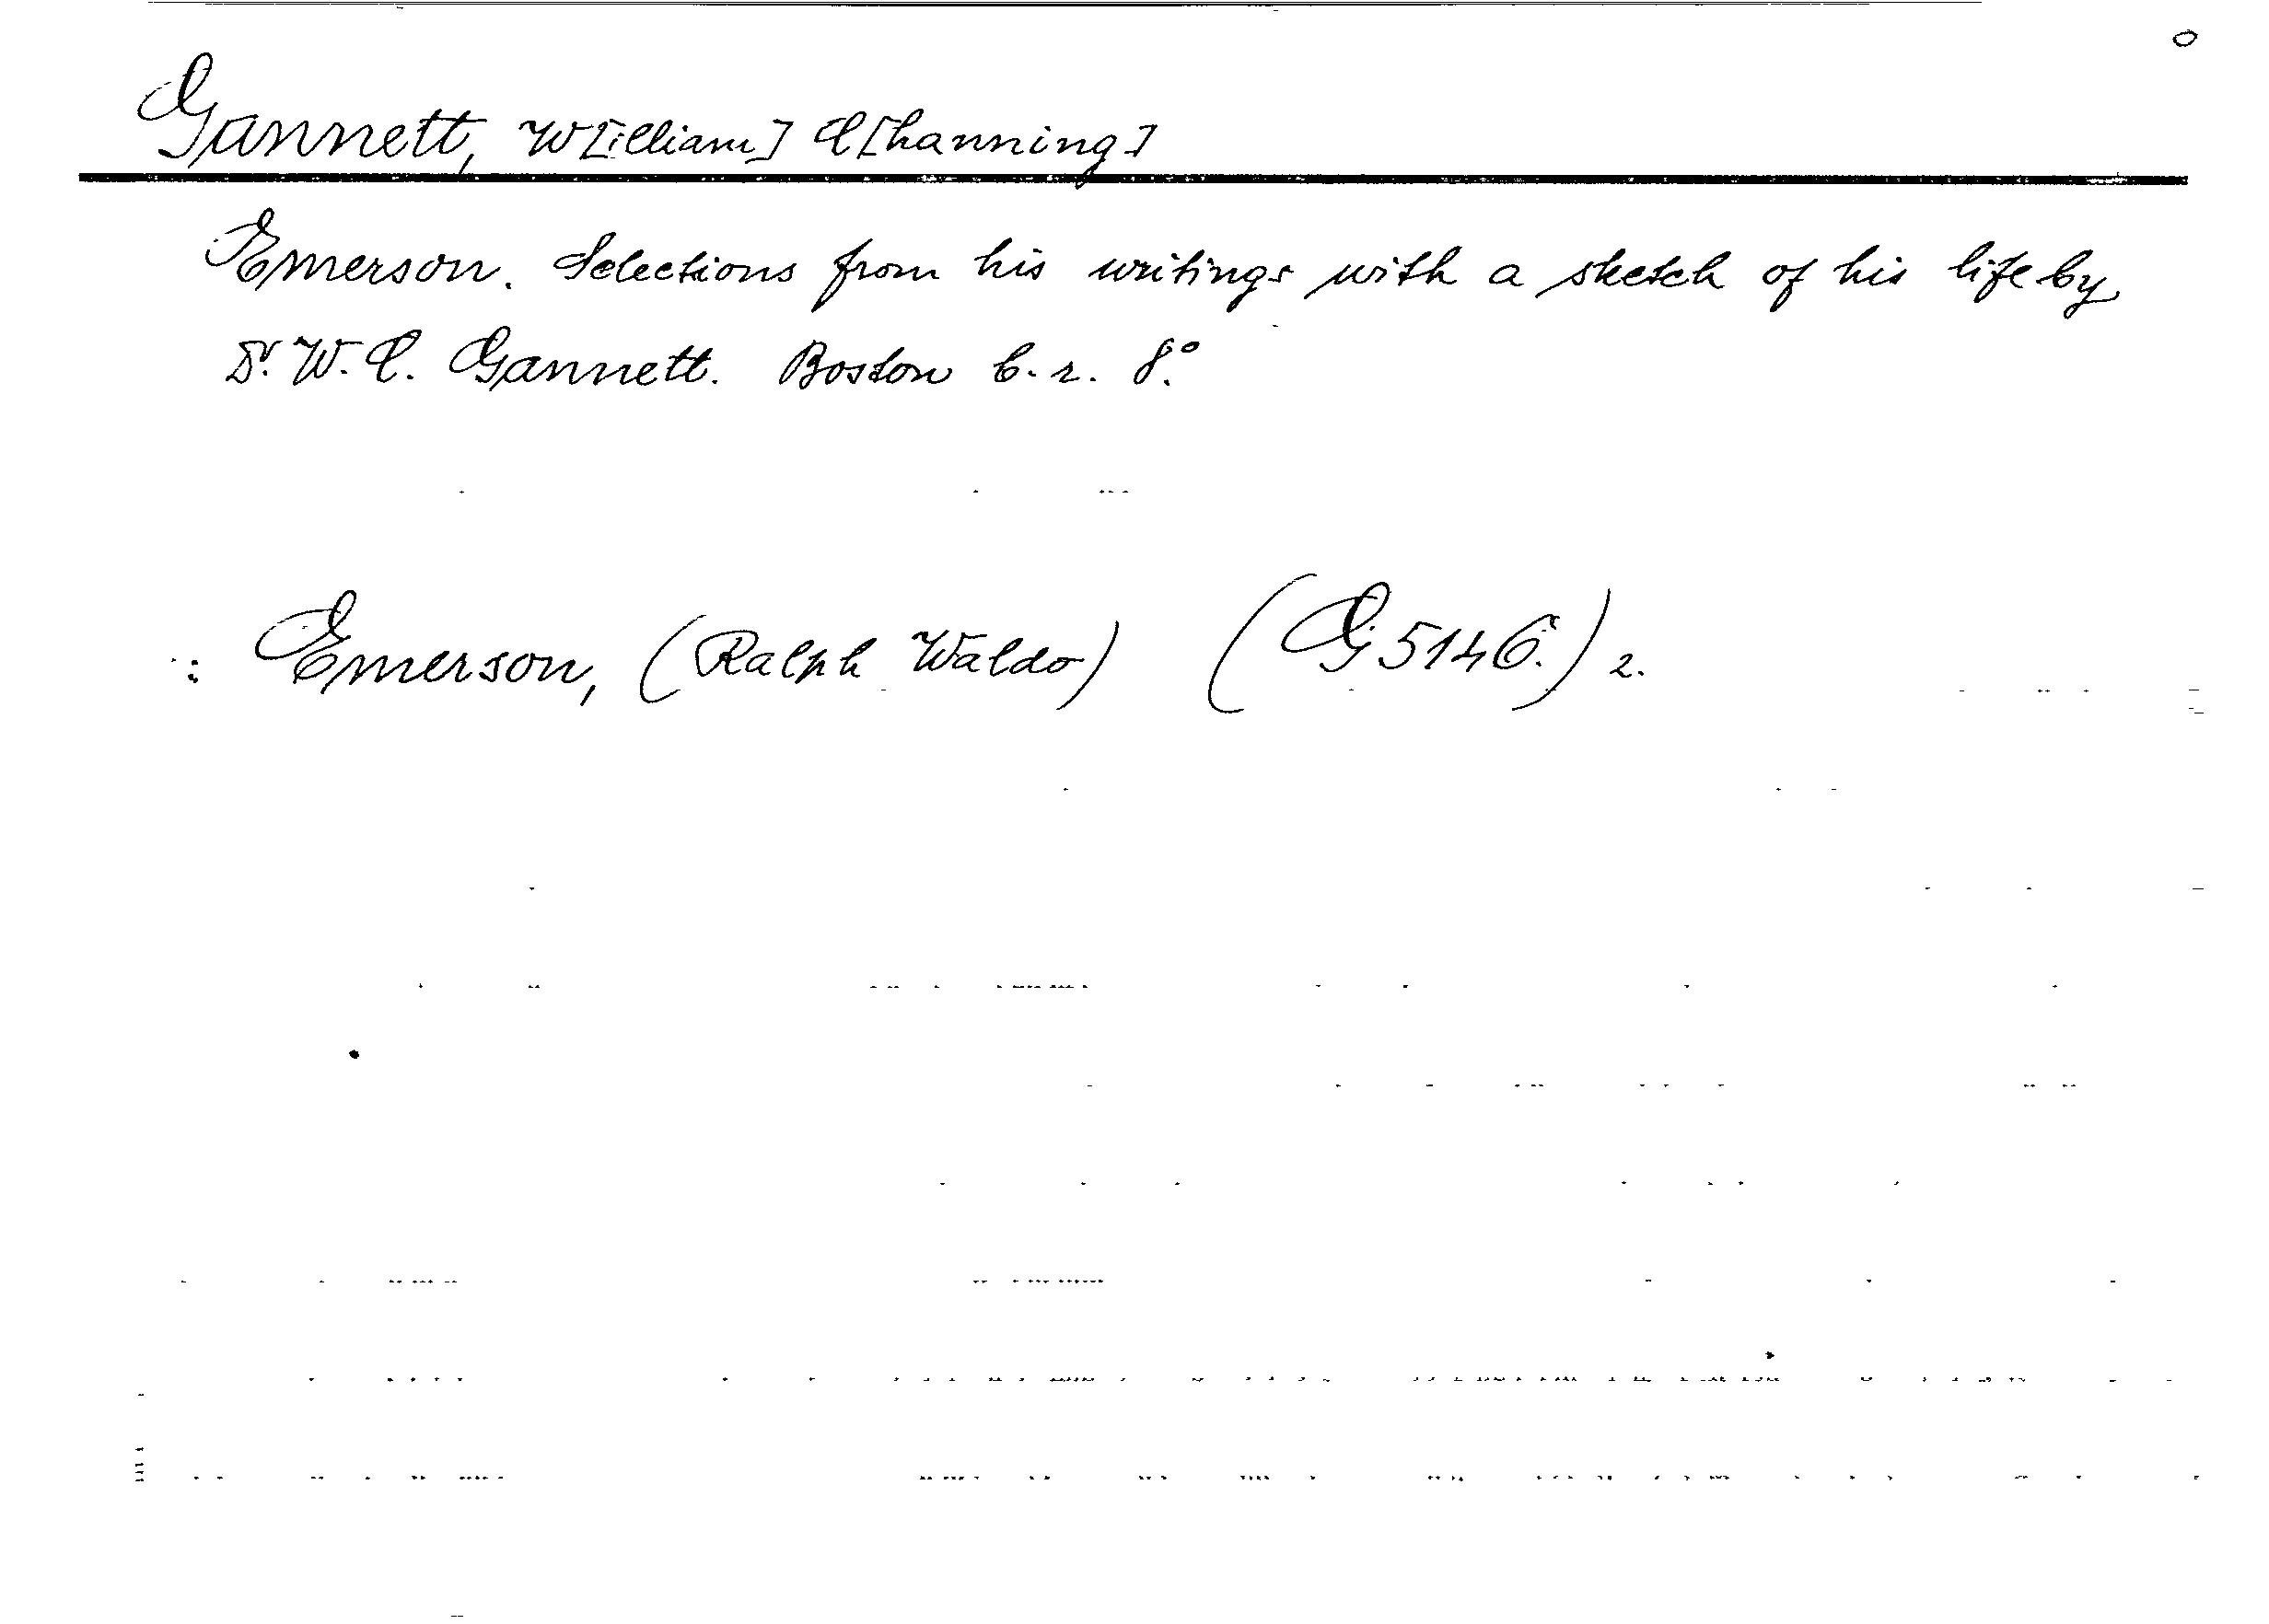 Gannett, W[illiam] C[hanning]
Emerson. Selections from his writings with a sketch of his life by
Dr. W. C. Gannett. Boston b. r. 8°.
: Emerson, (Ralph Waldo) (G 5146.) 2.